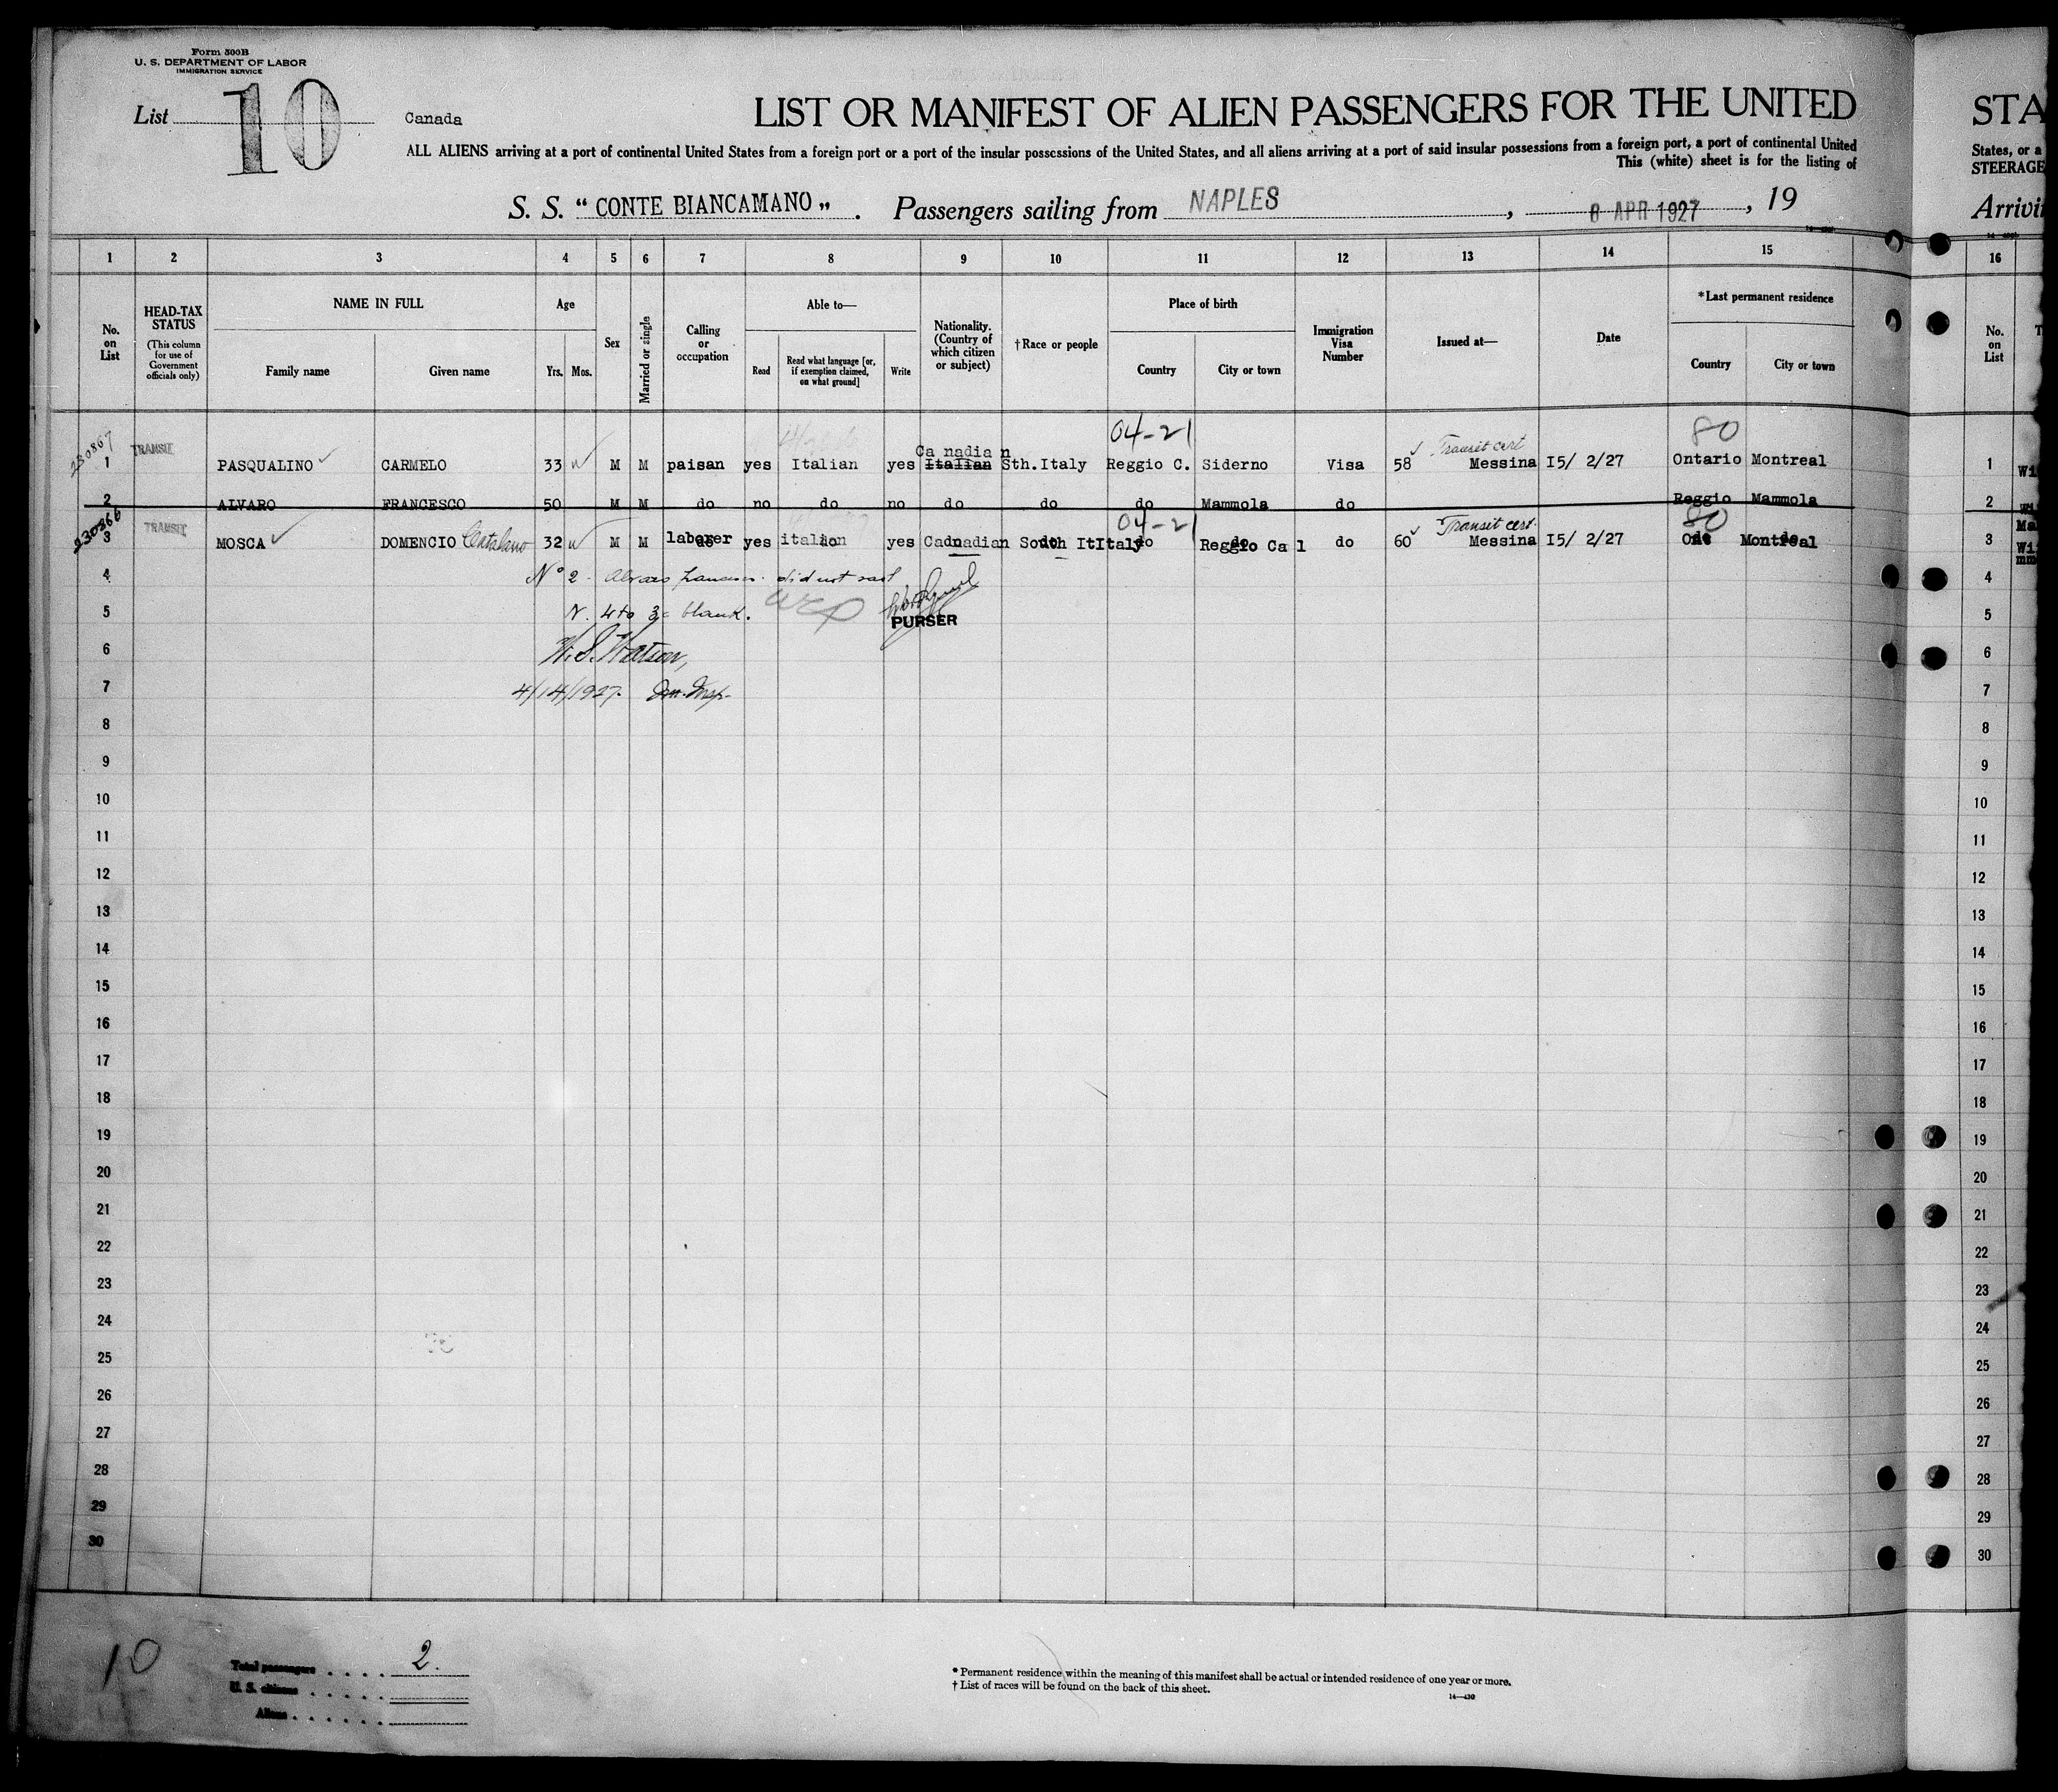 Form 500B
U. S. DEPARTMENT OF LABOR
IMMIGRATION SERVICE
List 10
Canada
LIST OR MANIFEST OF ALIEN PASSENGERS FOR THE UNITED STA
ALL ALIENS arriving at a port of continental United States from a foreign port or a port of the insular possessions of the United States, and all aliens arriving at a port of said insular possessions from a foreign port, a port of continental United States, or a
This (white) sheet is for the listing of STEERAGE
S. S. "CONTE BIANCAMANO". Passengers sailing from NAPLES, 8 APR 1927, 19
1 2 3 4 5 6 7 8 9 10 11 12 13 14 15 16
No. on List
HEAD-TAX STATUS (This column for use of Government officials only)
NAME IN FULL
Family name
Given name
Age
Yrs. Mos.
Sex
Married or single
Calling or occupation
Able to—
Read
Read what language [or, if exemption claimed, on what ground]
Write
Nationality. (Country of which citizen or subject)
†Race or people
Place of birth
Country
City or town
Immigration Visa Number
Issued at—
Date
*Last permanent residence
Country
City or town
No. on List
04-21 80
230867 TRANSIT Canadian Transit cert
1 PASQUALINO CARMELO 33 M M paisan yes Italian yes Italian Sth.Italy Reggio C. Siderno Visa 58 Messina I5/ 2/27 Ontario Montreal 1
2 ALVARO FRANCESCO 50 M M do no do no do do do Mammola do Reggio Mammola 2
230866 TRANSIT 04-21 Transit cert. 80
3 MOSCA DOMENCIO Catalano 32 M M laborer yes italian yes Canadian South Italy do Reggio Cal do 60 Messina I5/ 2/27 Ont Montreal 3
4 No 2 Alvaro Francesco did not sail 4
5 N. 4 to 30 blank. PURSER 5
6 W. S. Watson, 6
7 4/14/1927. Imm. Insp. 7
8 8
9 9
10 10
11 11
12 12
13 13
14 14
15 15
16 16
17 17
18 18
19 19
20 20
21 21
22 22
23 23
24 24
25 25
26 26
27 27
28 28
29 29
30 30
10
Total passengers . . . . 2.
U. S. citizens . . . . .
Aliens . . . . . .
* Permanent residence within the meaning of this manifest shall be actual or intended residence of one year or more.
† List of races will be found on the back of this sheet.
14—430